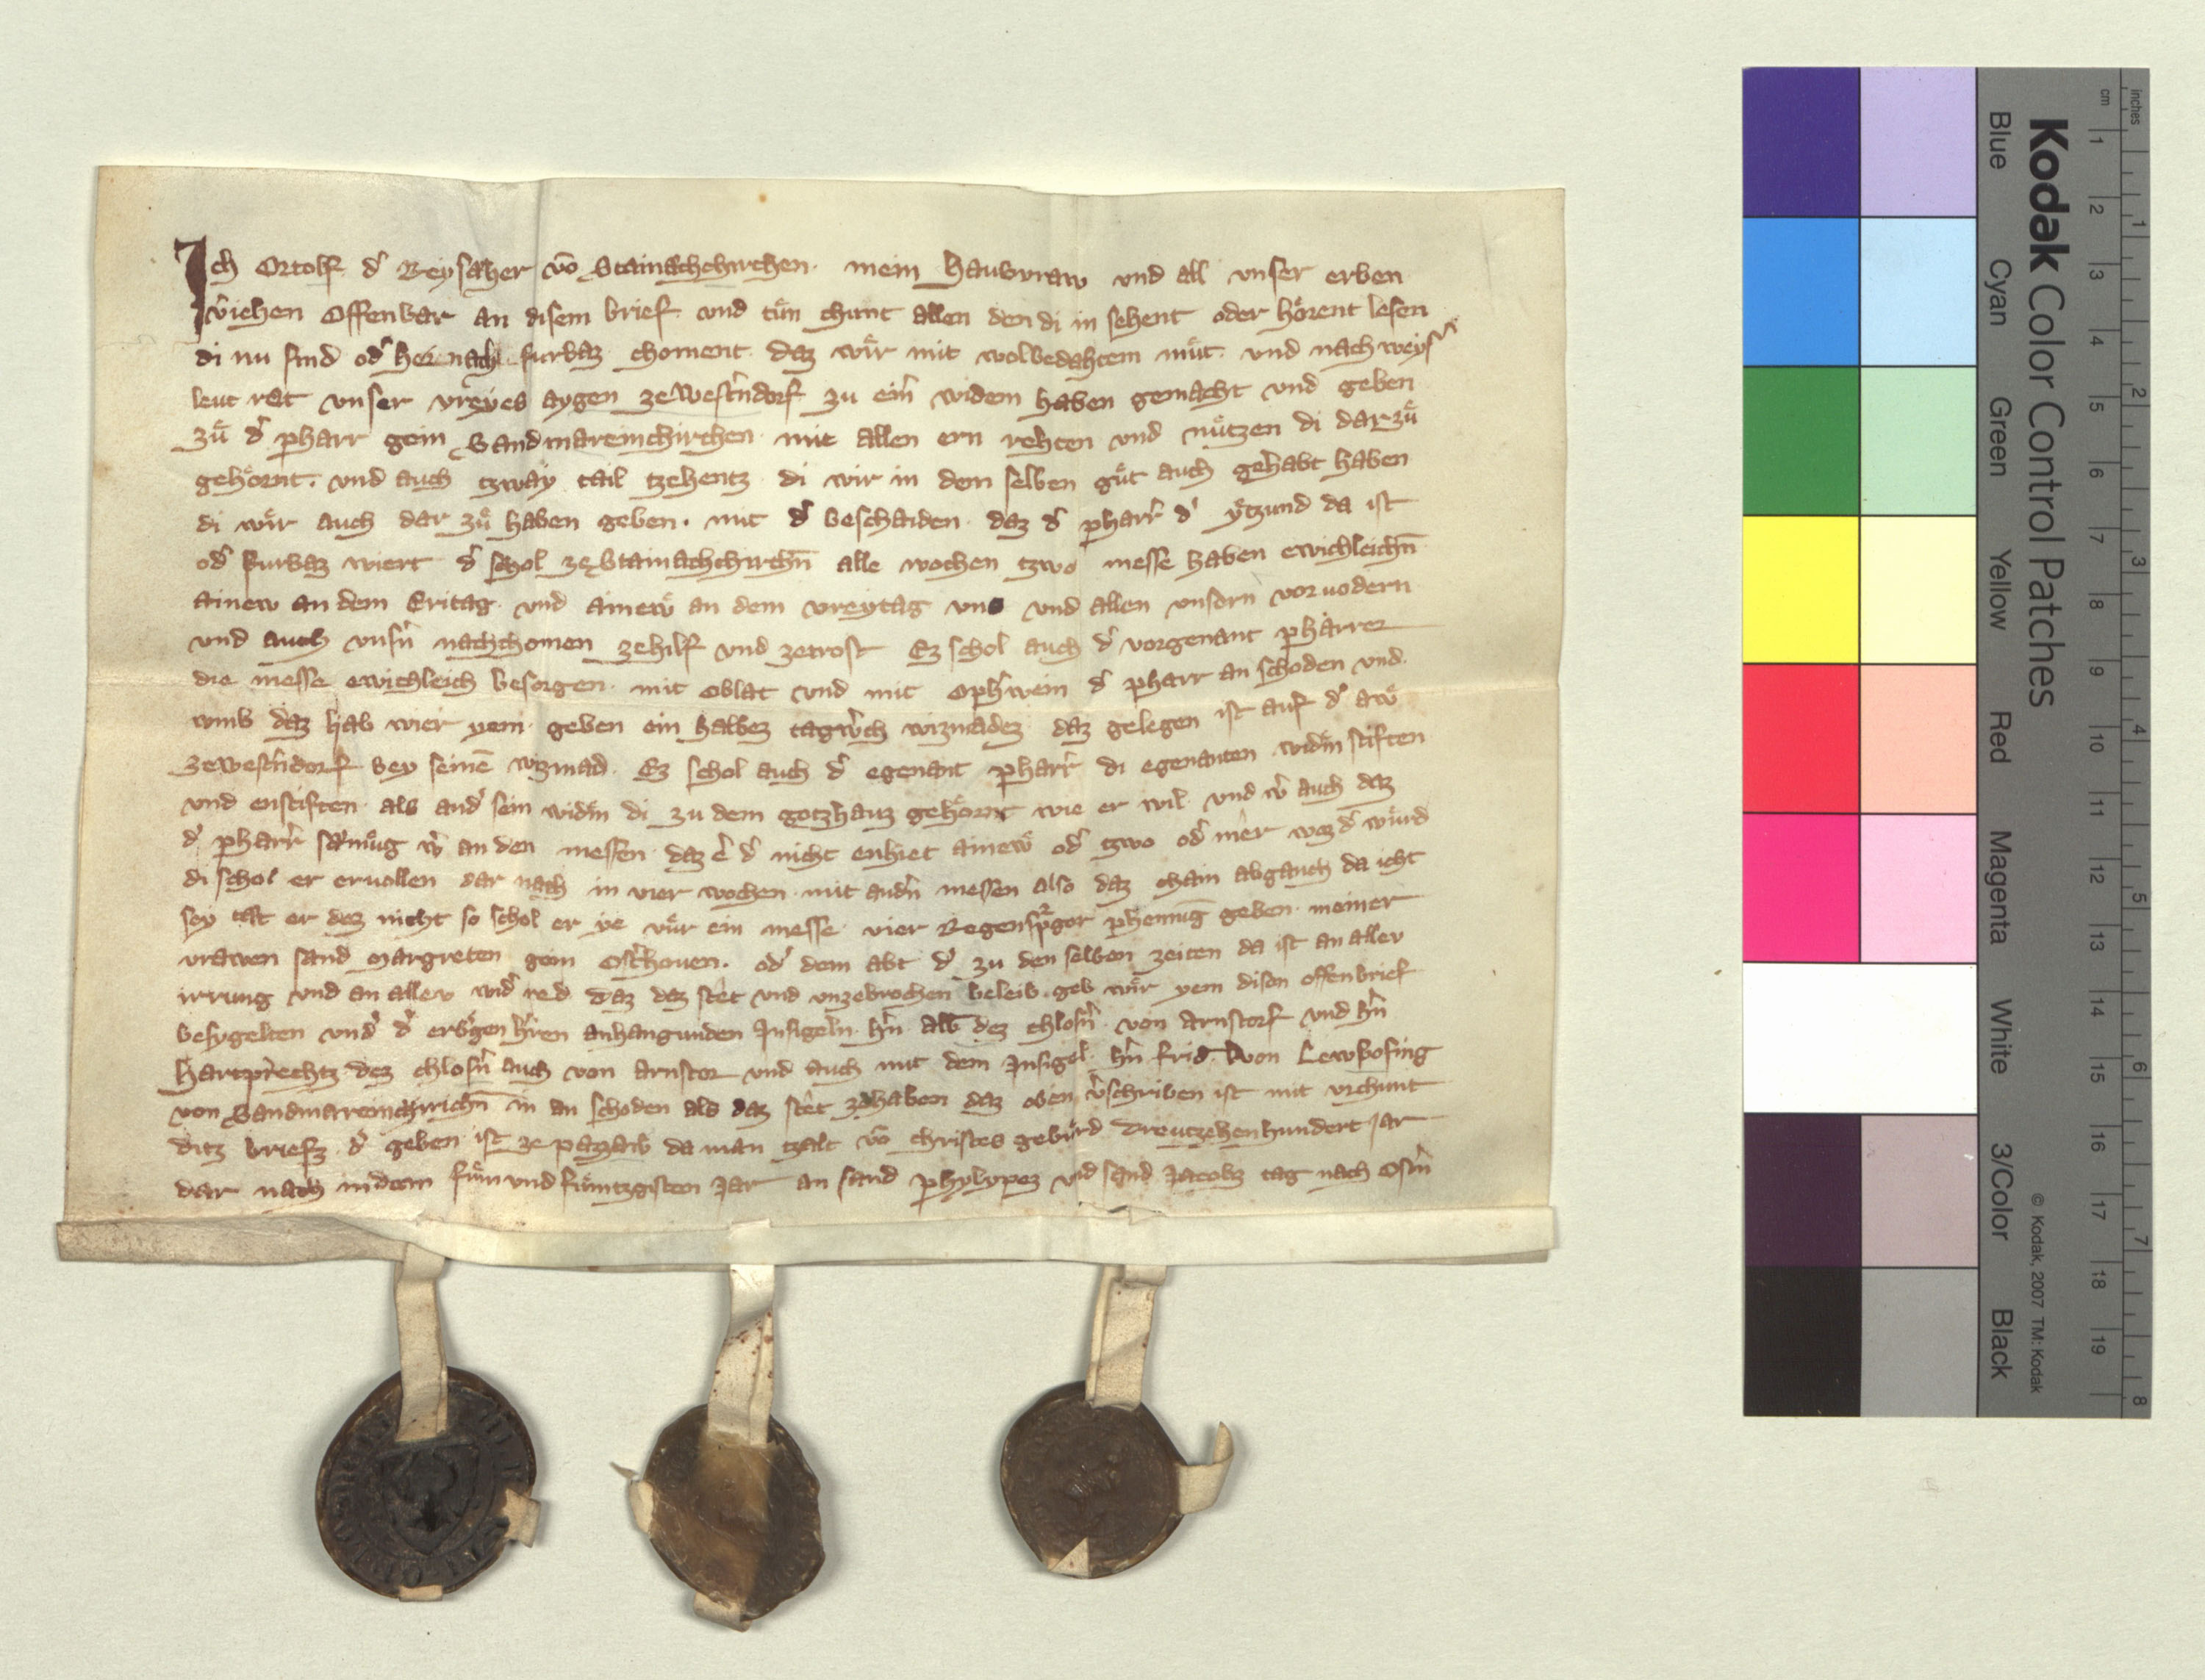 Ich Ortolf d͛ Reysaher vō Stainachchirchen. mein Hausvraw vnd all vnser erben
v͛iehen Offenbar an disem brief vnd tuͤn chunt allen den di in sehent oder hoͤrent lesen
di nu sind od͛ her nach furbaz choment. daz wiͤr mit wolbedahtem muͤt. vnd nach weys͛
leut rat vnser vreyes aygen ze West͛ndorf zu ein͛ widem haben gemacht vnd geben
zuͤ d͛ pharr gein Sandmareinchirchen. mit allen ern rehten vnd nuͤtzen di darzuͤ
gehoͤrnt. vnd auch tzway tail tzehentz di wir in dem selben guͤt auch gehabt haben
di wiͤr auch dar zuͤ haben geben. mit d͛ beschaiden daz d͛ pharr͛ d͛ yͤtzund da ist
od͛ furbaz wiert d͛ schol ze Stainachchirchn̄ alle wochen tzwo messe haben ewichleichn̄
ainew an dem Eritag. vnd ainewͤ an dem vreytag vns vnd allen vnsern voruodern
vnd auch vnsn͛ nachchomen zehilf vnd zetrost Ez schol auch d͛ vorgenant pharrer
die messe ewichleich besorgen. mit oblat vnd mit oph͛wein d͛ pharr an schoden vnd
vmb daz hab wier yem geben ein halbez tagw͛ch wizmadez daz gelegen ist auf d͛ awͤ
zewest͛ndorf bey seinē wizmad. Ez schol auch d͛ egenant pharr͛ di egenanten widm͛ stiften
vnd enstiften als and͛ sein widm͛ di zu dem gotzhauz gehoͤrnt wie er wil vnd w͛ auch daz
d͛ pharr͛ saͤmuͤg w͛ an den messen daz e͛ d͛ nicht enhiet ainewͤ od͛ tzwo od͛ mer waz d͛ wuͤrd
di schol er eruollen dar nach in vier wochen mit andn͛ messen also daz chain abgauch da icht
sey tæt er dez nicht so schol er ye vuͤr ein messe vier Regenspꝛger phennig̅ geben. meiner
vrawen sand Margreten gein Ost͛houen. od͛ dem abt d͛ zu den selben zeiten da ist an aller
irrung vnd an aller wid͛ red. daz daz stet vnd vnzebrochen beleib. geb wiͤr yem disen offenbrief
besygelten vnd͛ d͛ erb͛gen h͛ren anhangunden Insigeln. hn͛ alb̅ dez chlosn͛ von Arnstorf vnd hn͛
Hartprechtz dez chlosn͛ auch von Arnstor vnd auch mit dem Insigel hn͛ frid̅. von Lewbolfing
von Sandmareinchirichn̄ in an schoden als daz stet zehaben daz oben v͛schriben ist mit vrchunt
ditz briefz. d͛ geben ist ze pazzaw da man tzalt vō christes gebuͤrd Dreutzehenhundert jar
dar nach in dem fuͤm vnd fuͤmtzgisten Jar an sand Phylypez vnd sand Jacobz tag nach Ostn͛
Kodak Color Control Patches
Blue Cyan Green Yellow Red Magenta White 3/Color Black
© Kodak, 2007 TM: Kodak
inches 1 2 3 4 5 6 7 8
cm 1 2 3 4 5 6 7 8 9 10 11 12 13 14 15 16 17 18 19